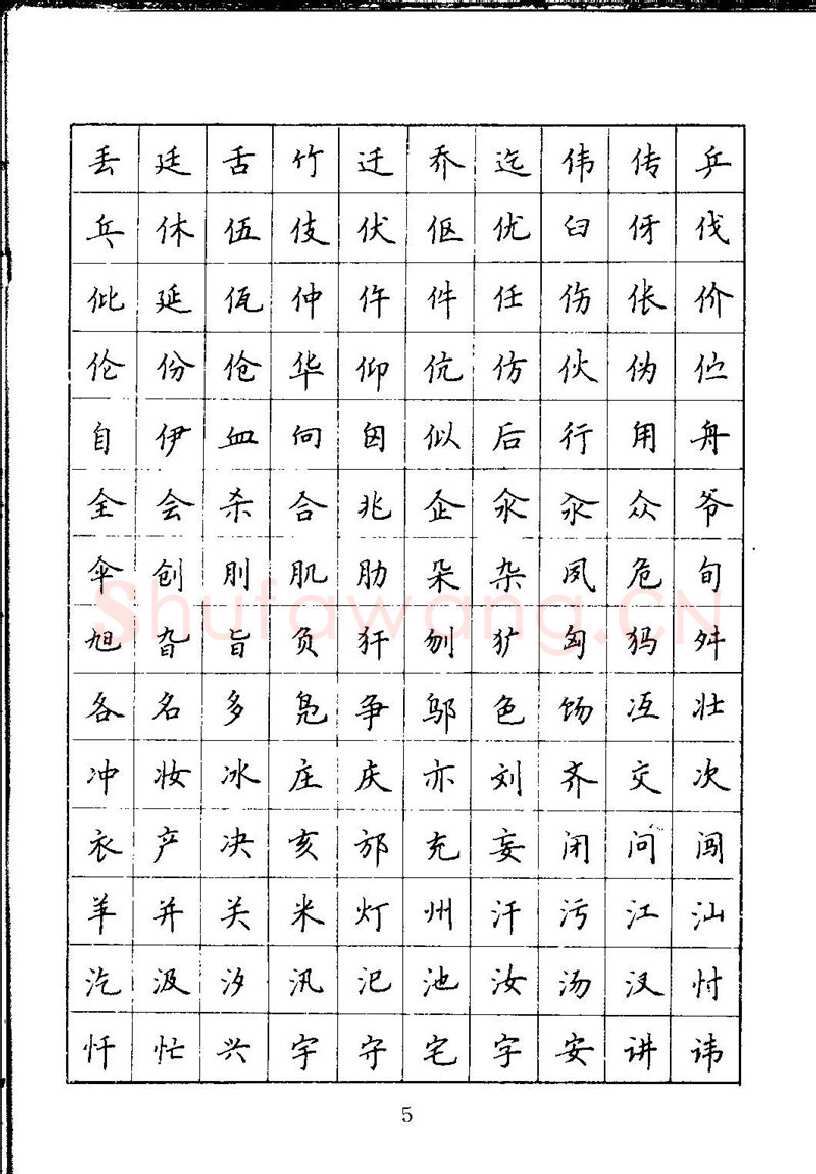 丢 廷 舌 竹 迁 乔 迄 伟 传 乒
乓 休 伍 伎 伏 伛 优 臼 伢 伐
仳 延 佤 仲 仵 件 任 伤 伥 价
伦 份 伧 华 仰 伉 仿 伙 伪 伫
自 伊 血 向 囟 似 后 行 甪 舟
全 会 杀 合 兆 企 汆 氽 众 爷
伞 创 刖 肌 肋 朵 杂 夙 危 旬
旭 旮 旨 负 犴 刎 犷 匈 犸 舛
各 名 多 凫 争 邬 色 饧 冱 壮
冲 妆 冰 庄 庆 亦 刘 齐 交 次
衣 产 决 亥 邡 充 妄 闭 问 闯
羊 并 关 米 灯 州 汗 污 江 汕
汔 汲 汐 汛 汜 池 汝 汤 汊 忖
忏 忙 兴 宇 守 宅 字 安 讲 讳
5
Shufawang.CN